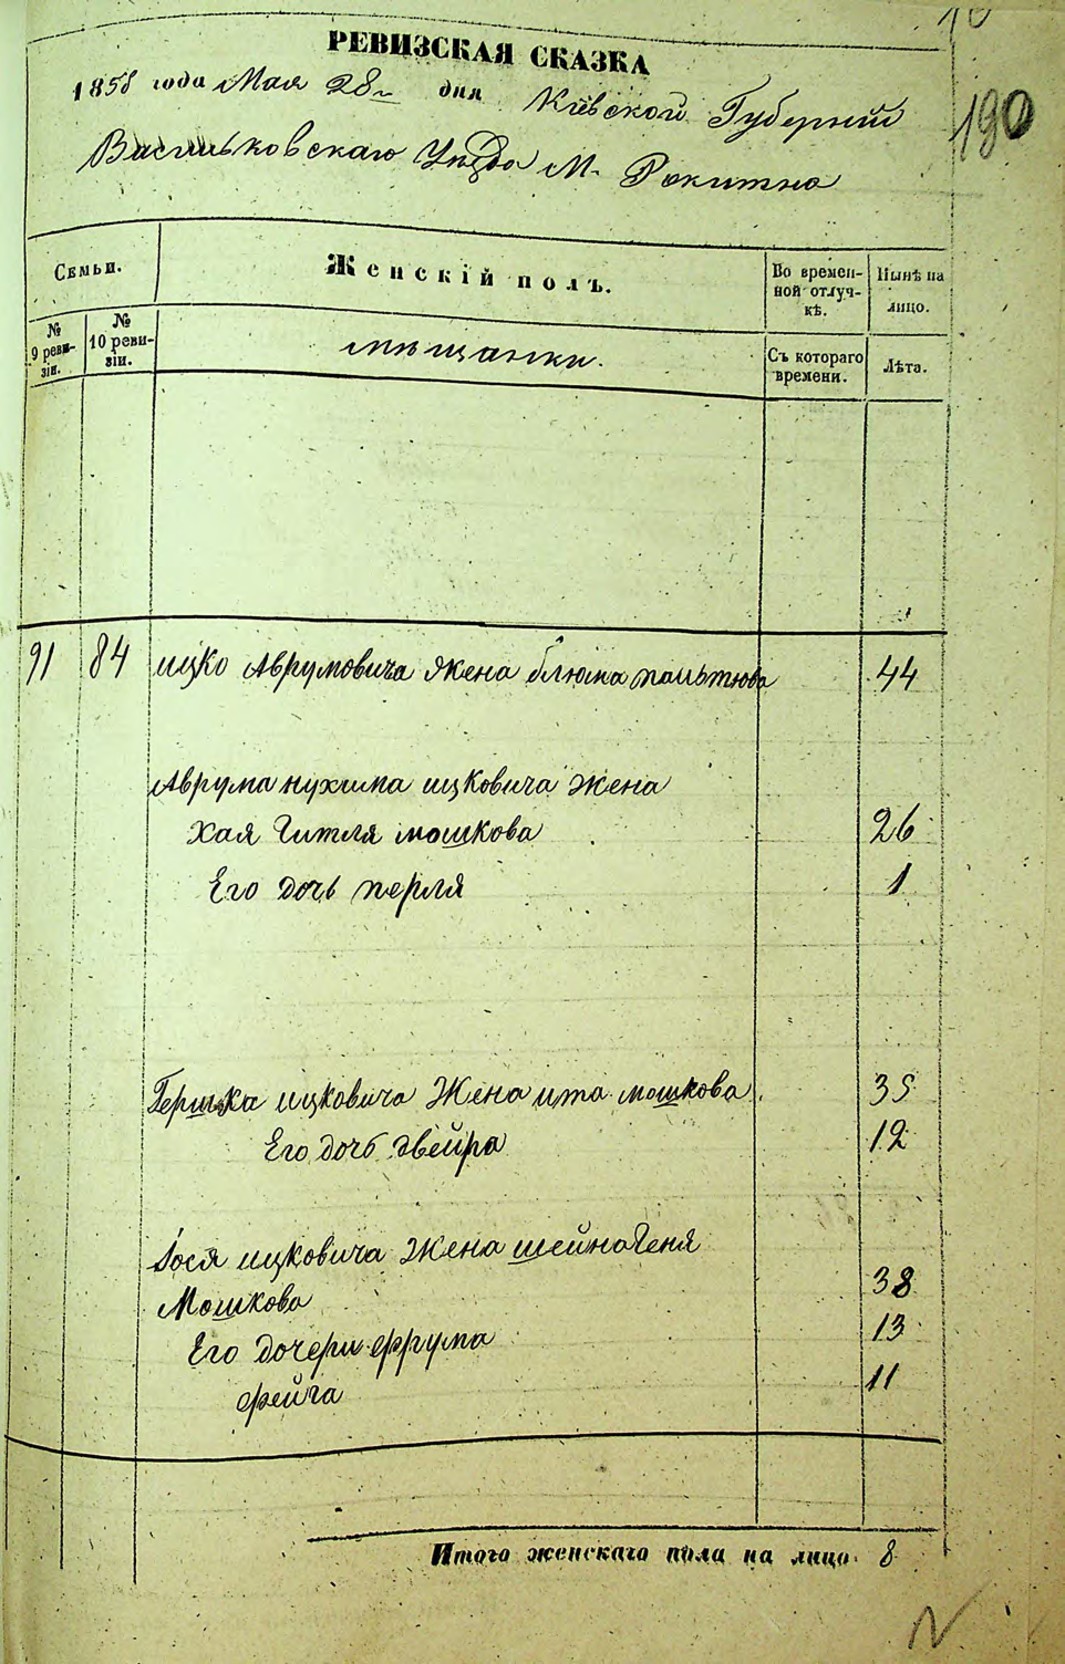 190
РЕВИЗСКАЯ СКАЗКА
1858 года Мая 28го дня Кіевской Губерніи
Васильковскаго Уѣзда М. Рокитна
Семьи.
Женскій полъ.
Во времен-
ной отлуч-
кѣ.
Нынѣ на
лицо.
№
9 реви-
зіи.
№
10 реви-
зіи.
мѣщанки.
Съ котораго
времени.
Лѣта.
91 84 ицко Аврумовича жена блюма 44
Аврума нухима ицковича жена
хая Гитля мошкова 26
Его дочь перля 1
Гершка ицковича Жена ита мошкова 35
Его дочь двейра 12
Іося ицковича Жена шейна Геня
Мошкова 38
Его дочери фрума 13
фейга 11
Итого женскаго пола на лицо 8